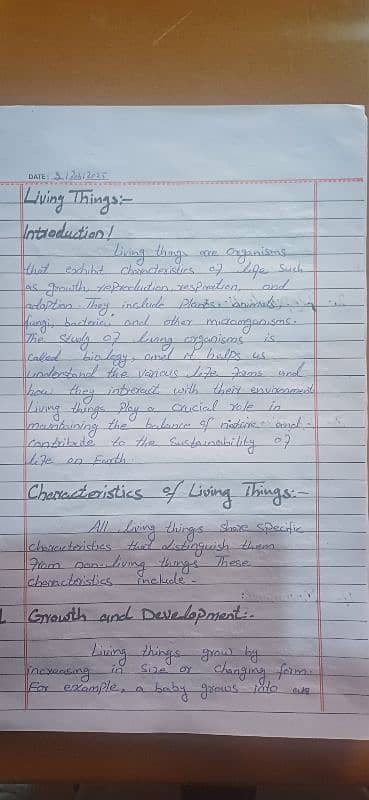 DATE: 3/Feb/2025
Living Things:-
Introduction!
Living things are organisms
that exhibit characteristics of life such
as growth, reproduction, respiration, and
adaption. They include Plants, animals,
fungi, bacteria, and other microorganisms.
The study of living organisms is
called biology, and it helps us
understand the various life forms and
how they intreract with their environment
Living things Play a crucial role in
maintaining the balance of nature and
contribute to the sustainability of
life on Earth.
Characteristics of Living Things:-
All living things share specific
characteristics that distinguish them
from non-living things These
characteristics include-
1 Growth and Development:-
Living things grow by
increasing in size or changing form.
For example, a baby grows into an